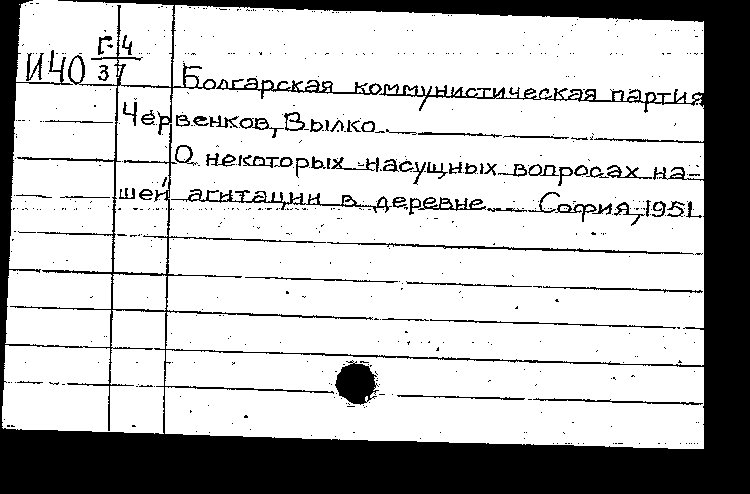 Г-4
И40 37
Болгарская коммунистическая партия
Червенков, Вылко.
О некоторых насущных вопросах на-
шей агитации в деревне. София, 1951